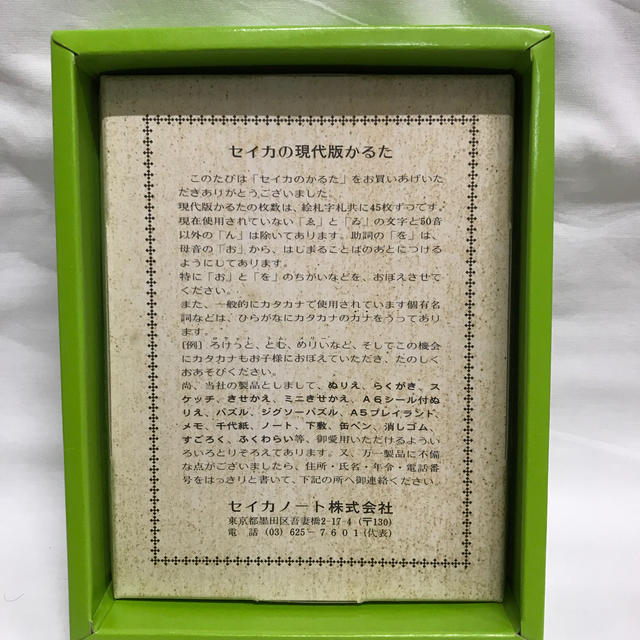 セイカの現代版かるた
このたびは「セイカのかるた」をお買いあげいた
だきありがとうございました。
現代版かるたの枚数は、絵札字札共に45枚ずつです。
現在使用されていない「ゑ」と「ゐ」の文字と50音
以外の「ん」は除いてあります。助詞の「を」は、
母音の「お」から、はじまることばのあとにつける
ようにしてあります。
特に「お」と「を」のちがいなどを、おぼえさせて
ください。
また、一般的にカタカナで使用されています個有名
詞などは、ひらがなにカタカナのカナをうってあり
ます。
[例] ろけっと、とむ、めりいなど、そしてこの機会
にカタカナもお子様におぼえていただき、たのしく
おあそびください。
尚、当社の製品としまして、ぬりえ、らくがき、ス
ケッチ、きせかえ、ミニきせかえ、A6シール付ぬ
りえ、パズル、ジグソーパズル、A5プレイランド、
メモ、千代紙、ノート、下敷、缶ペン、消しゴム、
すごろく、ふくわらい等、御愛用いただけるようい
ろいろとりそろえてあります。又、万一製品に不備
な点がございましたら、住所・氏名・年令・電話番
号をはっきりと書いて、下記の所へ御連絡ください。
セイカノート株式会社
東京都墨田区吾妻橋2-17-4 (〒130)
電話 (03) 625-7601(代表)